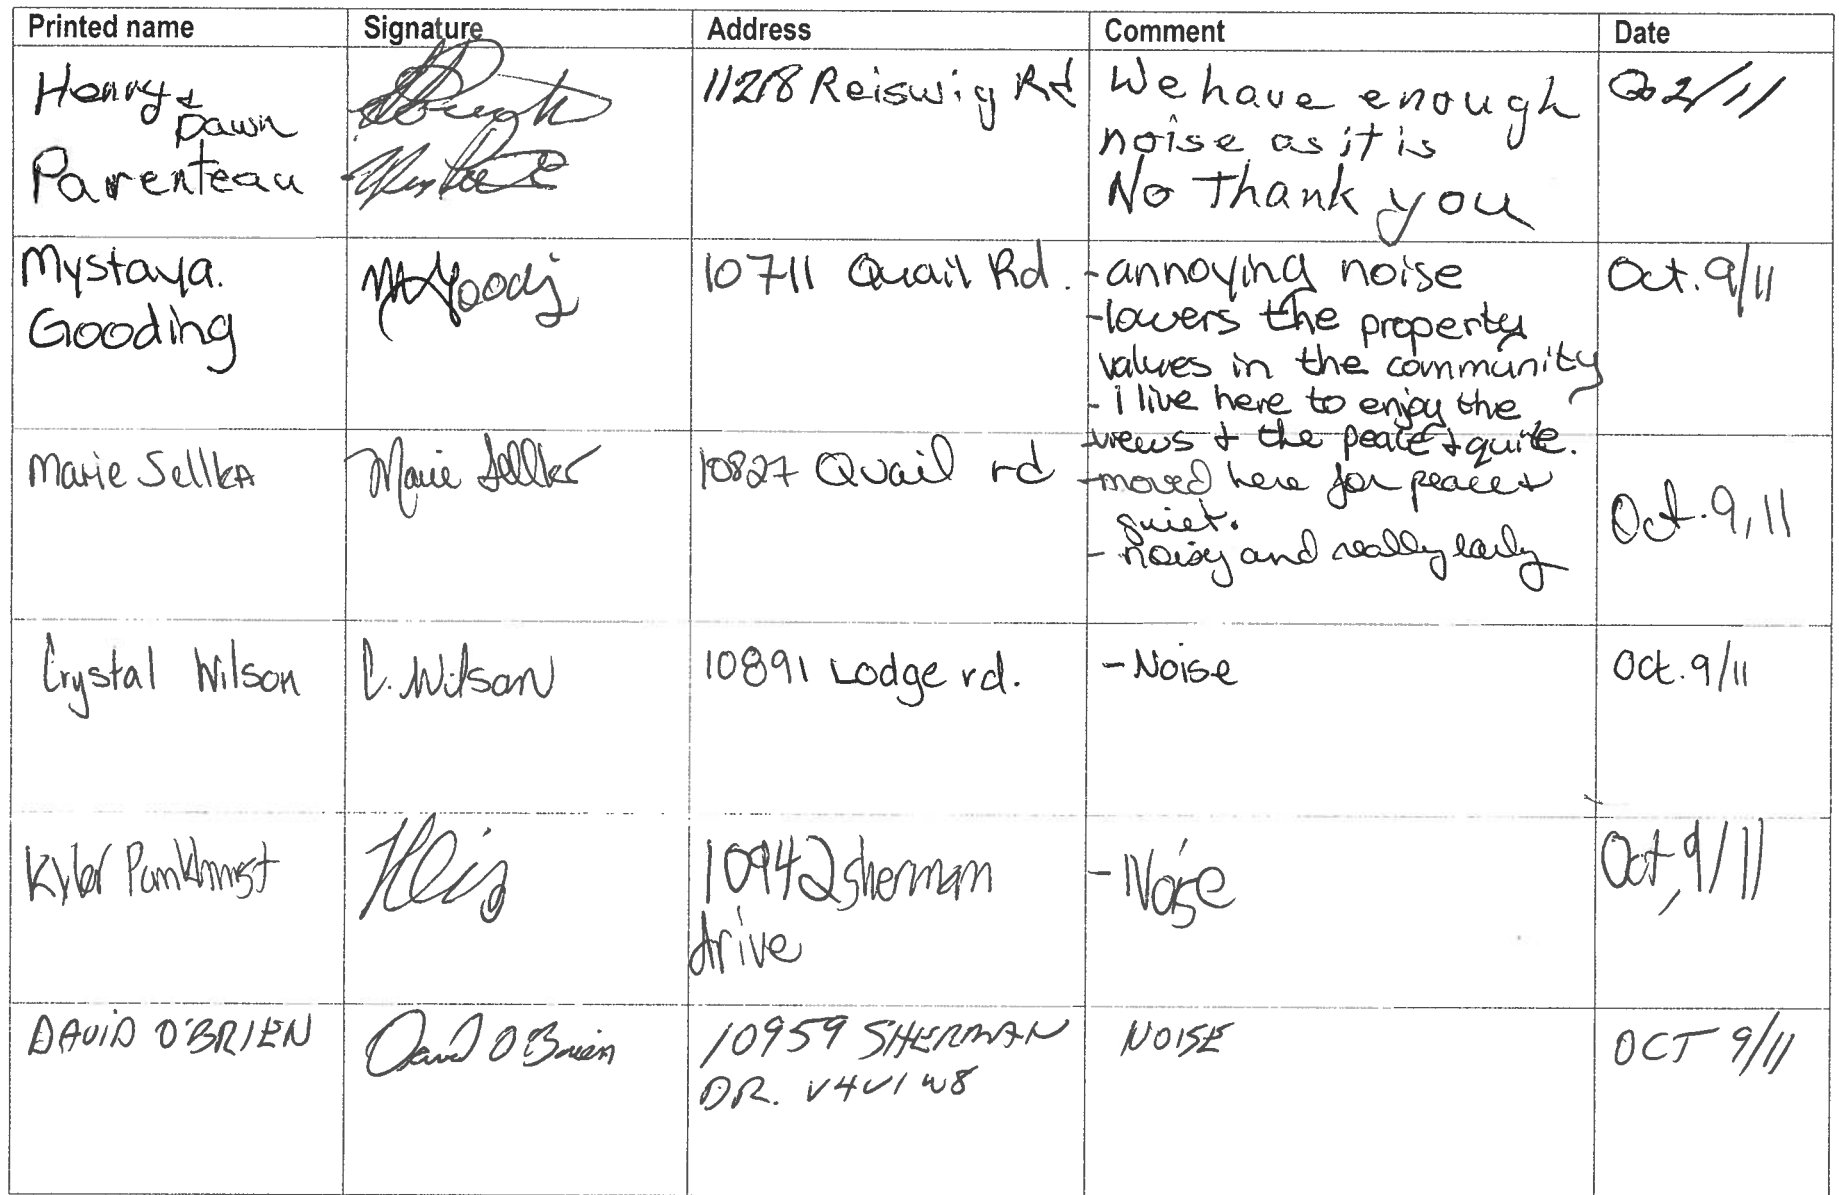 Printed name Signature Address Comment Date
Henry & Dawn Parenteau
11218 Reiswig Rd
We have enough
noise as it is
No Thank you
2/11
Mystaya.
Gooding
10711 Quail Rd.
- annoying noise
- lowers the property
values in the community
- I live here to enjoy the
views & the peace & quite.
Oct. 9/11
Marie Sellka
Marie Sellker
10827 Quail rd
- moved here for peace &
quiet.
- noisy and really early
Oct. 9, 11
Crystal Wilson
C. Wilson
10891 Lodge rd.
- Noise
Oct. 9/11
Kyler Pankhurst
10942 sherman
drive
- Noise
Oct, 9/11
DAVID O'BRIEN
David O'Brien
10959 SHERMAN
DR. V4V1W8
NOISE
OCT 9/11